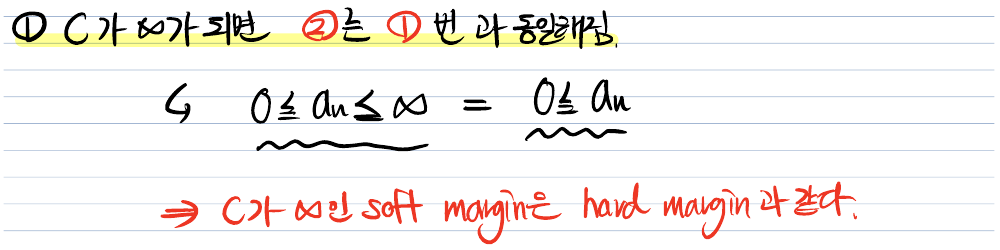 ① C가 ∞가 되면 ②는 ①번과 동일해짐.
↳ 0 ≦ an ≦ ∞ = 0 ≦ an
⇒ C가 ∞인 soft margin은 hard margin과 같다.